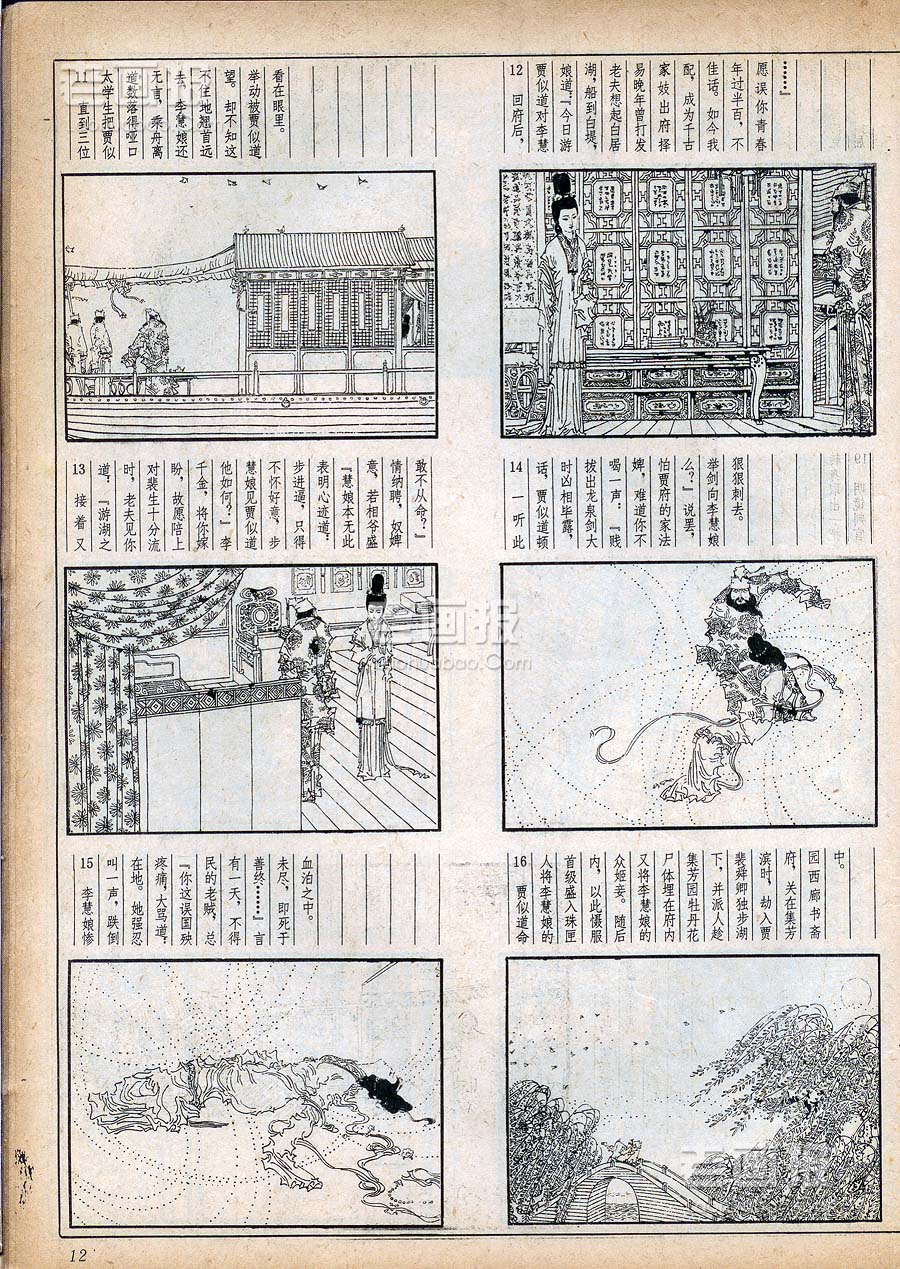 11 直到三位
太学生把贾似
道数落得哑口
无言，乘舟离
去，李慧娘还
不住地翘首远
望。却不知这
举动被贾似道
看在眼里。
12 回府后，
贾似道对李慧
娘道：『今日游
湖，船到白堤，
老夫想起白居
易晚年曾打发
家妓出府择
配，成为千古
佳话。如今我
年过半百，不
愿误你青春
……』
13 接着又
道：『游湖之
时，老夫见你
对裴生十分流
盼，故愿陪上
千金，将你嫁
他如何？』李
慧娘见贾似道
不怀好意，步
步进逼，只得
表明心迹道：
『慧娘本无此
意，若相爷盛
情纳聘，奴婢
敢不从命？』
14 一听此
话，贾似道顿
时凶相毕露，
拔出龙泉剑大
喝一声：『贱
婢，难道你不
怕贾府的家法
么？』说罢，
举剑向李慧娘
狠狠刺去。
15 李慧娘惨
叫一声，跌倒
在地。她强忍
疼痛，大骂道：
『你这误国殃
民的老贼，总
有一天，不得
善终……』言
未尽，即死于
血泊之中。
16 贾似道命
人将李慧娘的
首级盛入珠匣
内，以此慑服
众姬妾。随后
又将李慧娘的
尸体埋在府内
集芳园牡丹花
下，并派人趁
裴舜卿独步湖
滨时，劫入贾
府，关在集芳
园西廊书斋
中。
12